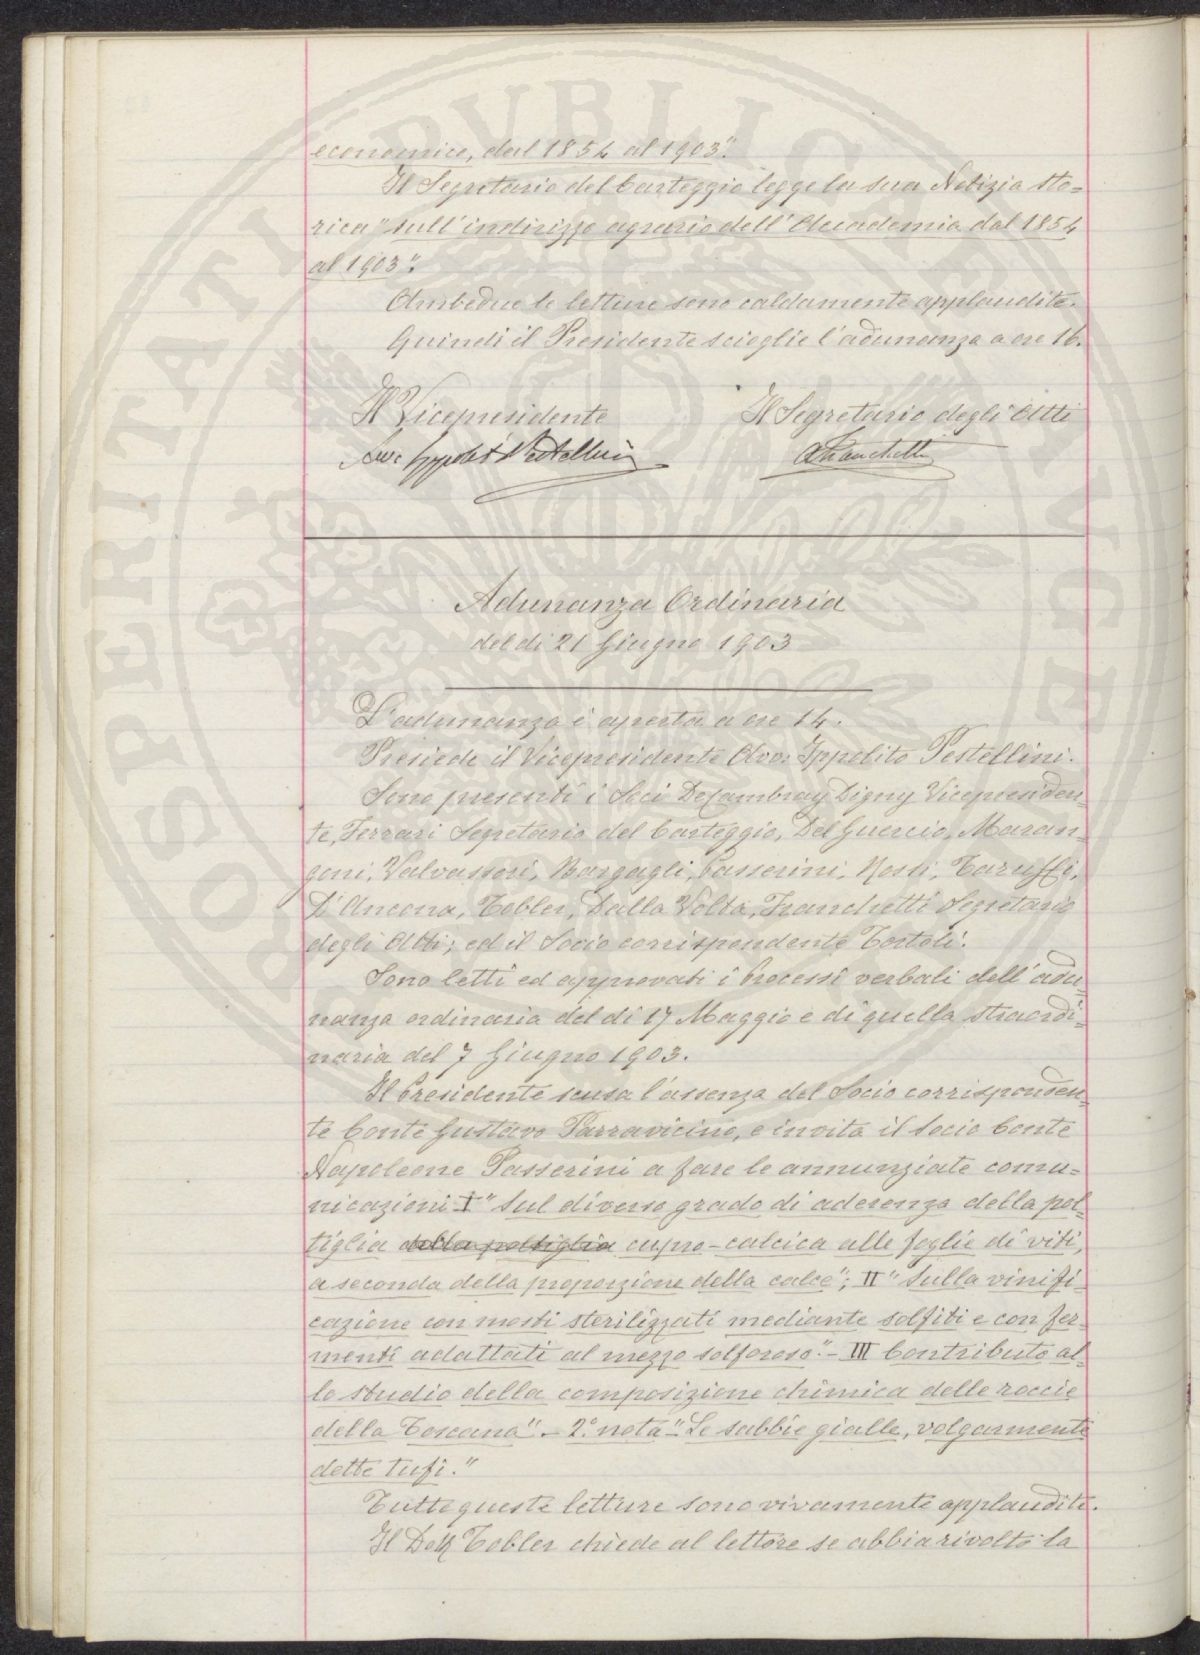 economico, dal 1854 al 1903".
Il Segretario del Carteggio legge la sua Notizia sto=
rica "sull'indirizzo agrario dell'Accademia dal 1854
al 1903".
Ambedue le letture sono caldamente applaudite.
Quindi il Presidente scioglie l'adunanza a ore 16.
Il Vicepresidente
Il Segretario degli Atti
Avv. Ippolito Pestellini
A Franchetti
Adunanza Ordinaria
del dì 21 Giugno 1903
L'adunanza è aperta a ore 14.
Presiede il Vicepresidente Avv. Ippolito Pestellini.
Sono presenti i Soci De Cambray Digny Vicepresiden=
te, Ferrari Segretario del Carteggio, Del Guercio, Maran=
goni, Valvassori, Bargagli, Passerini, Mosti, Taruffi,
D'Ancona, Tobler, Dalla Volta, Franchetti Segretario
degli Atti; ed il Socio corrispondente Tortoli.
Sono letti ed approvati i Processi verbali dell'adu=
nanza ordinaria del dì 17 Maggio e di quella straordi=
naria del 7 Giugno 1903.
Il Presidente scusa l'assenza del Socio corrisponden=
te Conte Gustavo Parravicino, e invita il socio Conte
Napoleone Passerini a fare le annunziate comu=
nicazioni I "Sul diverso grado di aderenza della pol=
tiglia della poltiglia cupro-calcica alle foglie di viti,
a seconda della proporzione della calce"; II "Sulla vinifi=
cazione con mosti sterilizzati mediante solfiti e con fer=
menti adattati al mezzo solforoso." - III Contributo al=
lo studio della composizione chimica delle roccie
della Toscana". - 2ª nota "Le sabbie gialle, volgarmente
dette tufi."
Tutte queste letture sono vivamente applaudite.
Il Dott Tobler chiede al lettore se abbia rivolto la
PROSPERITATI PVBLICAE AVGENDAE